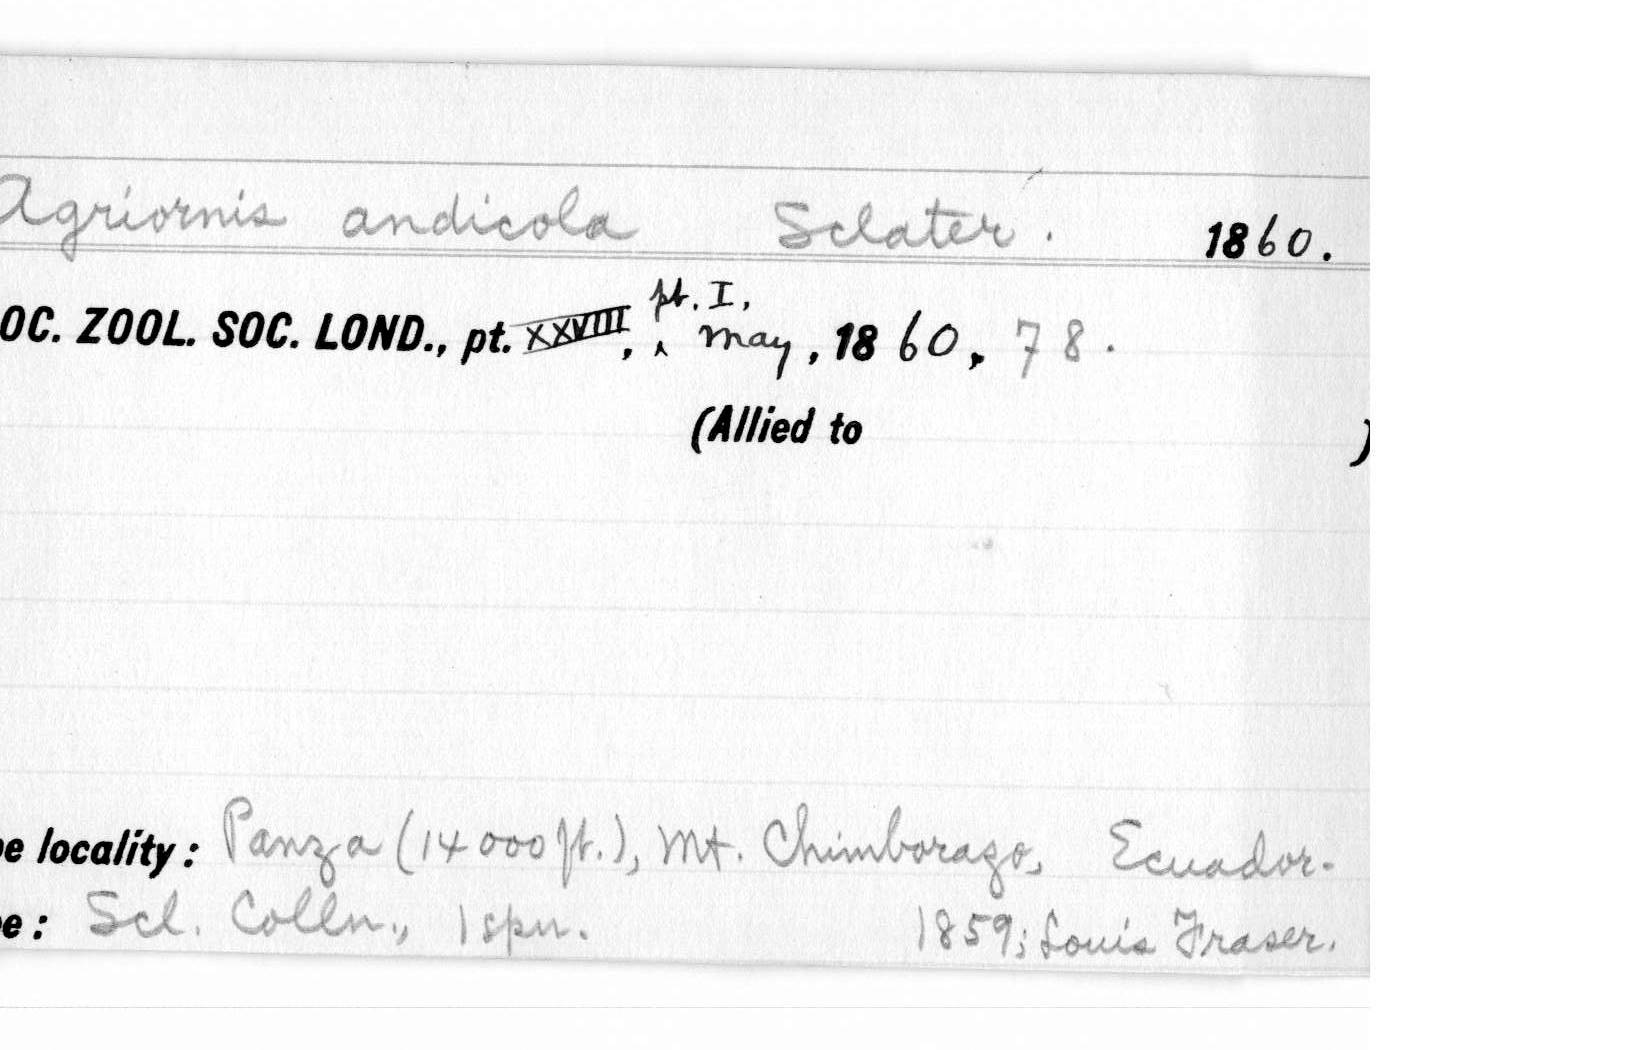 Agriornis andicola Sclater. 1860.
OC. ZOOL. SOC. LOND., pt. XXVIII, pt. I, May, 1860, 78.
(Allied to )
e locality: Panza (14000 ft.), Mt. Chimborazo, Ecuador.
e: Scl. Colln., 1 spn. 1859; Louis Fraser.